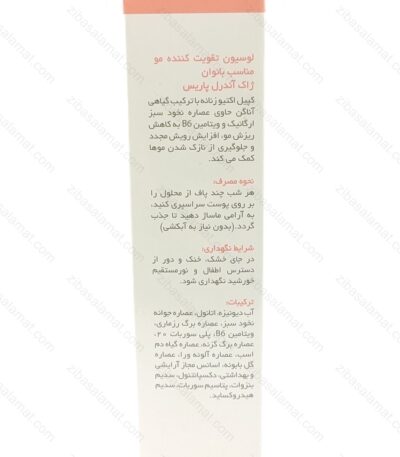 لوسیون تقویت کننده مو
مناسب بانوان
ژاک آندرل پاریس
کپیل اکتیو زنانه با ترکیب گیاهی
آناگن حاوی عصاره نخود سبز
ارگانیک و ویتامین B6 به کاهش
ریزش مو، افزایش رویش مجدد
و جلوگیری از نازک شدن موها
کمک می کند.
نحوه مصرف:
هر شب چند پاف از محلول را
بر روی پوست سر اسپری کنید،
به آرامی ماساژ دهید تا جذب
گردد.(بدون نیاز به آبکشی)
شرایط نگهداری:
در جای خشک، خنک و دور از
دسترس اطفال و نورمستقیم
خورشید نگهداری شود.
ترکیبات:
آب دیونیزه، اتانول، عصاره جوانه
نخود سبز، عصاره برگ رزماری،
ویتامین B6، پلی سوربات ۲۰،
عصاره برگ گزنه، عصاره گیاه دم
اسب، عصاره آلوئه ورا، عصاره
گل بابونه، اسانس مجاز آرایشی
و بهداشتی، دکسپانتنول، سدیم
بنزوات، پتاسیم سوربات، سدیم
هیدروکساید.
zibasalamat.com